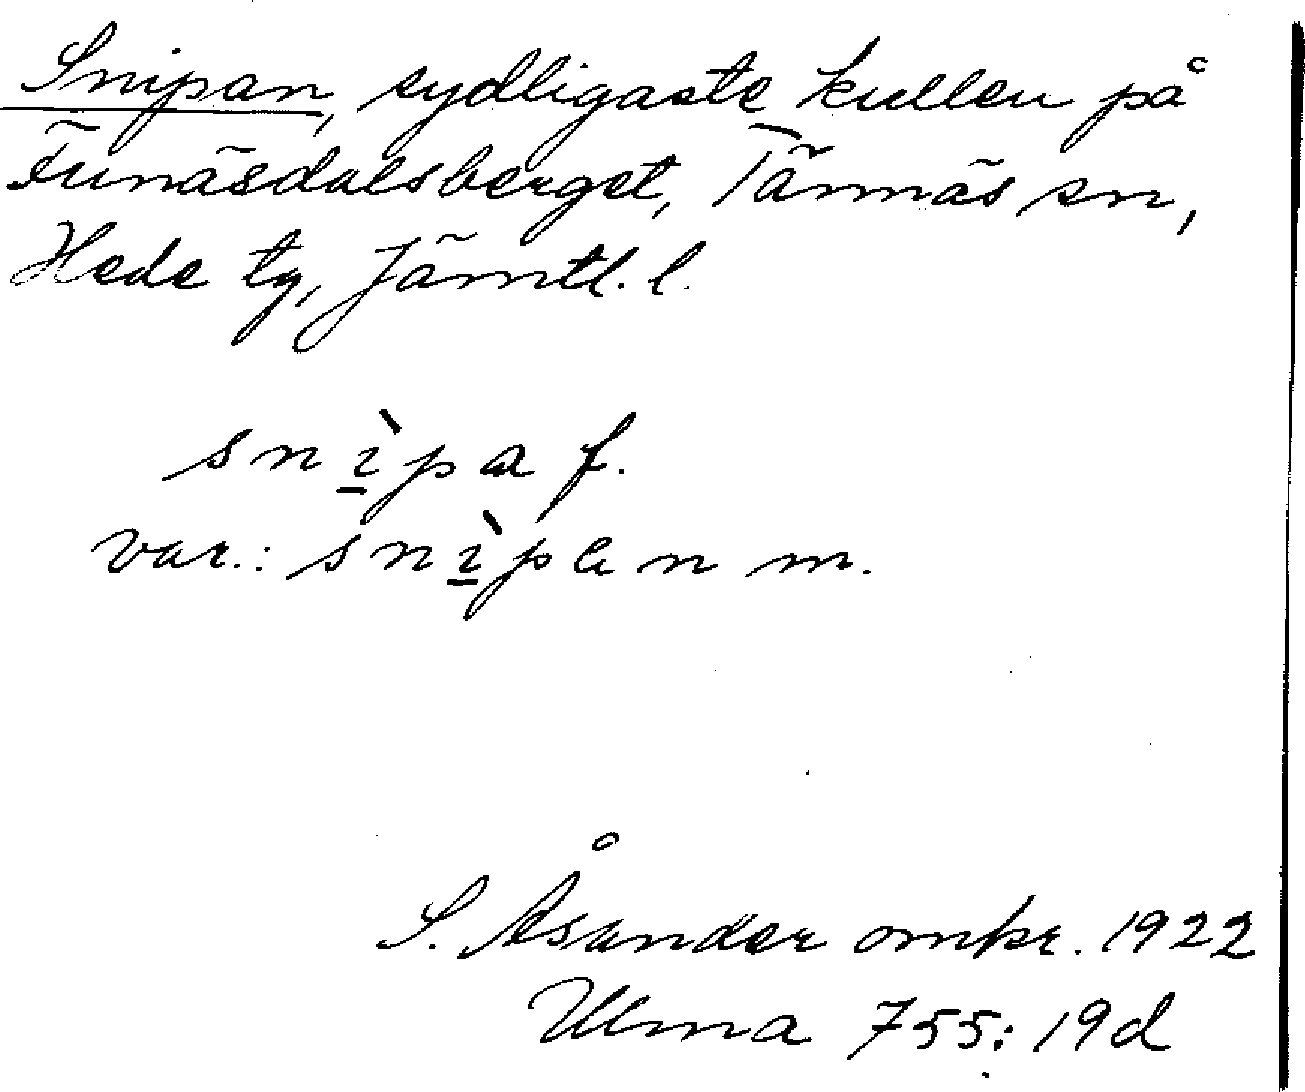 Snipan, sydligaste kullen på
Funäsdalsberget, Tännäs sn,
Hede tg, Jämtl. l.
snı̲̀pa f.
var.: snı̲̀pen m.
S. Åsander omkr. 1922
Ulma 755:19d